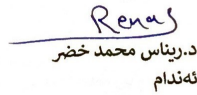 Renas
د.ریناس محمد خضر
ئەندام